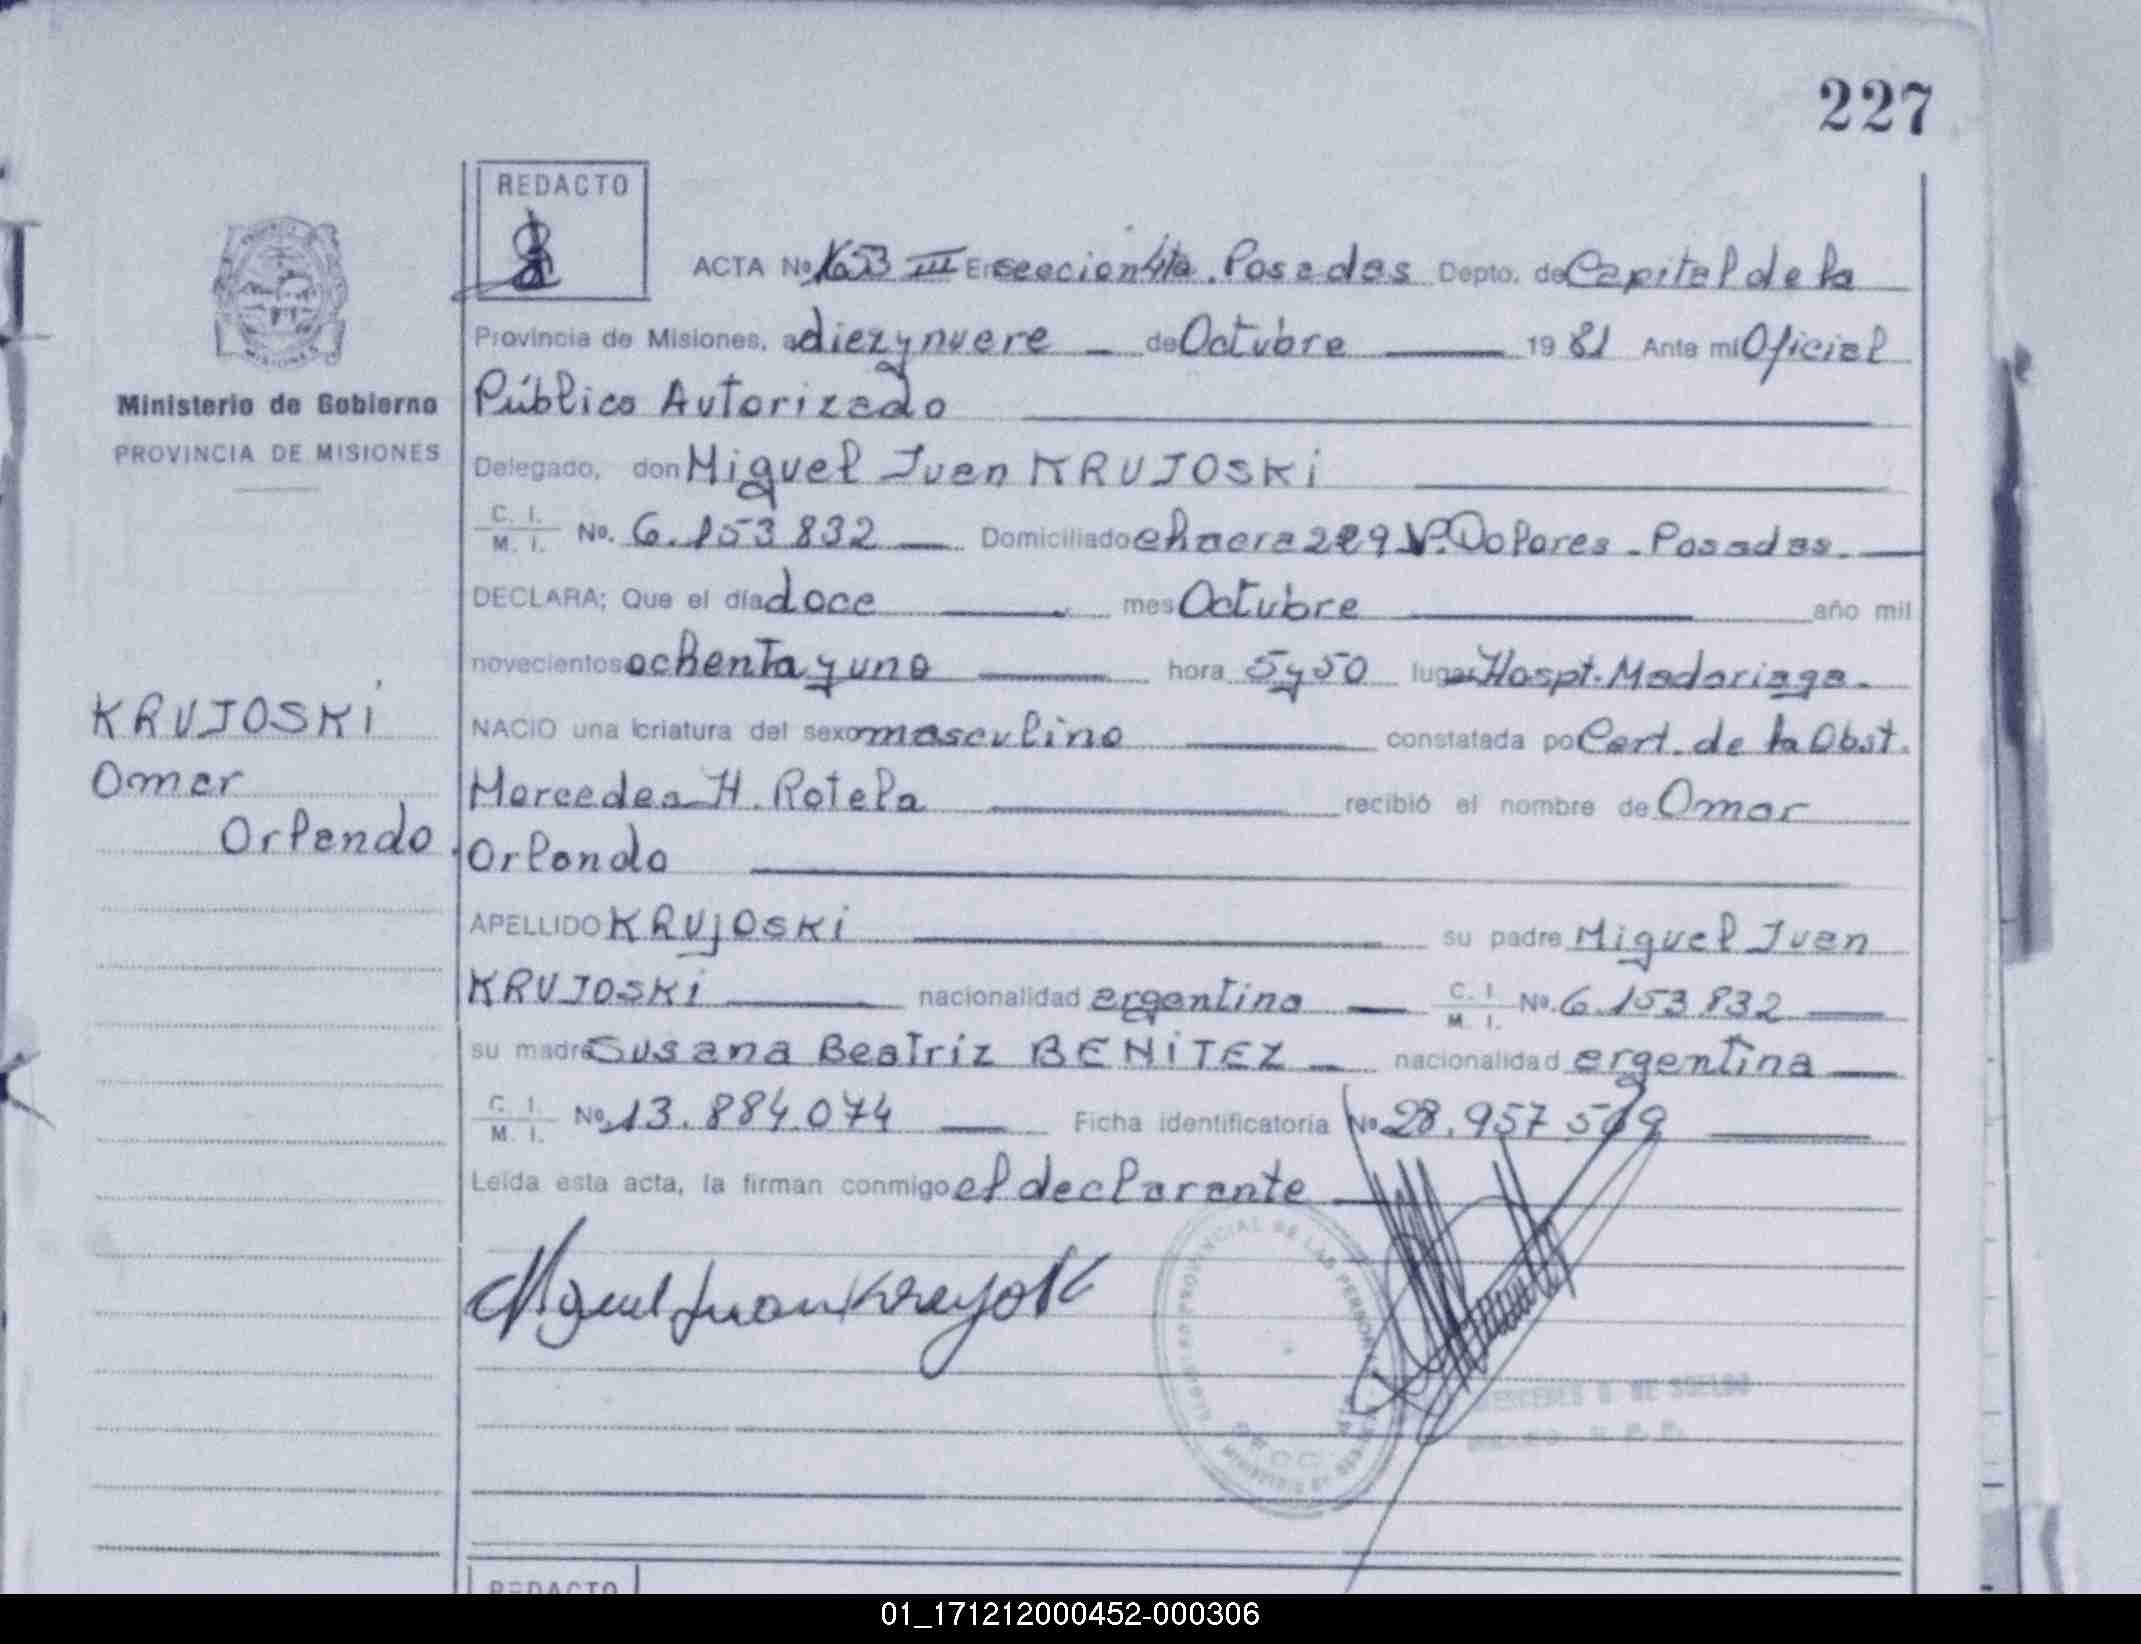 227
REDACTO
ACTA No 1653 III En seccion 4ta. Posadas Depto. de Capital de la
Provincia de Misiones, a diez y nueve de Octubre 19 81 Ante mi Oficial
Ministerio de Gobierno
Público Autorizado
PROVINCIA DE MISIONES
Delegado, don Miguel Juan KRUJOSKI
C. I. M. I. No. 6.153832 Domiciliado chacra 229 V. Dolores - Posadas.
DECLARA; Que el día doce mes Octubre año mil
novecientos ochenta y uno hora 5 y 50 lugar Hospt. Madariaga.
KRUJOSKI
NACIO una criatura del sexo masculino constatada por Cert. de la Obst.
Omar
Mercedes H. Rotela recibió el nombre de Omar
Orlando.
Orlando
APELLIDO KRUJOSKI su padre Miguel Juan
KRUJOSKI nacionalidad argentino C. I. M. I. No. 6.153832
su madre Susana Beatriz BENITEZ nacionalidad argentina
C. I. M. I. No. 13.884.074 Ficha identificatoria No 28.957 569
Leída esta acta, la firman conmigo el declarante
Miguel Juan
PROVINCIAL DE LAS PERSONAS
REDACTO
01_171212000452-000306